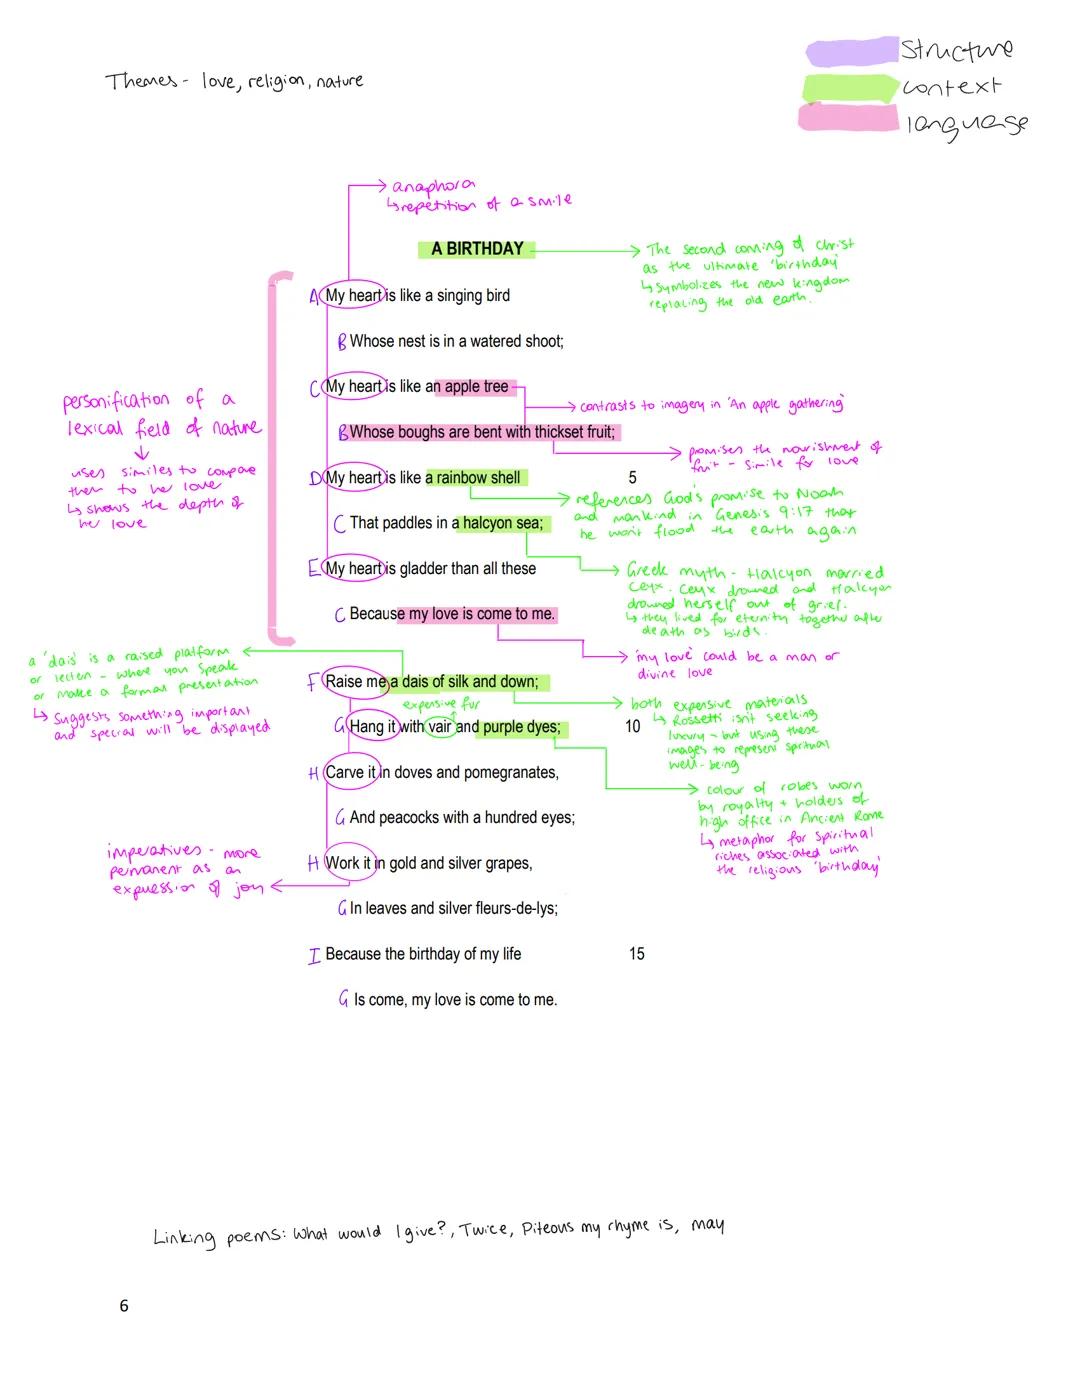 Themes - love, religion, nature
structure
context
language
anaphora
↳repetition of a smile
A BIRTHDAY
The second coming of Christ
as the ultimate 'birthday'
↳ symbolizes the new kingdom
replacing the old earth.
A My heart is like a singing bird
B Whose nest is in a watered shoot;
C My heart is like an apple tree
contrasts to imagery in 'An apple gathering'
B Whose boughs are bent with thickset fruit;
promises the nourishment of
fruit - simile for love
personification of a
lexical field of nature
↓
uses similes to compare
them to her love
↳ shows the depth of
her love
D My heart is like a rainbow shell 5
references God's promise to Noah
and mankind in Genesis 9:17 that
he won't flood the earth again
C That paddles in a halcyon sea;
E My heart is gladder than all these
Greek myth - Halcyon married
Ceyx. Ceyx drowned and Halcyon
drowned herself out of grief.
↳ they lived for eternity together after
death as birds.
C Because my love is come to me.
'my love' could be a man or
divine love
a 'dais' is a raised platform
or lecten - where you speak
or make a formal presentation
↳ suggests something important
and special will be displayed
F Raise me a dais of silk and down;
expensive fur
both expensive materials
↳ Rossetti isn't seeking
luxury - but using these
images to represent spiritual
well-being
G Hang it with vair and purple dyes; 10
colour of robes worn
by royalty + holders of
high office in Ancient Rome
↳ metaphor for spiritual
riches associated with
the religious 'birthday'
H Carve it in doves and pomegranates,
G And peacocks with a hundred eyes;
imperatives - more
permanent as an
expression of joy
H Work it in gold and silver grapes,
G In leaves and silver fleurs-de-lys;
I Because the birthday of my life 15
G Is come, my love is come to me.
Linking poems: What would I give?, Twice, Piteous my rhyme is, may
6